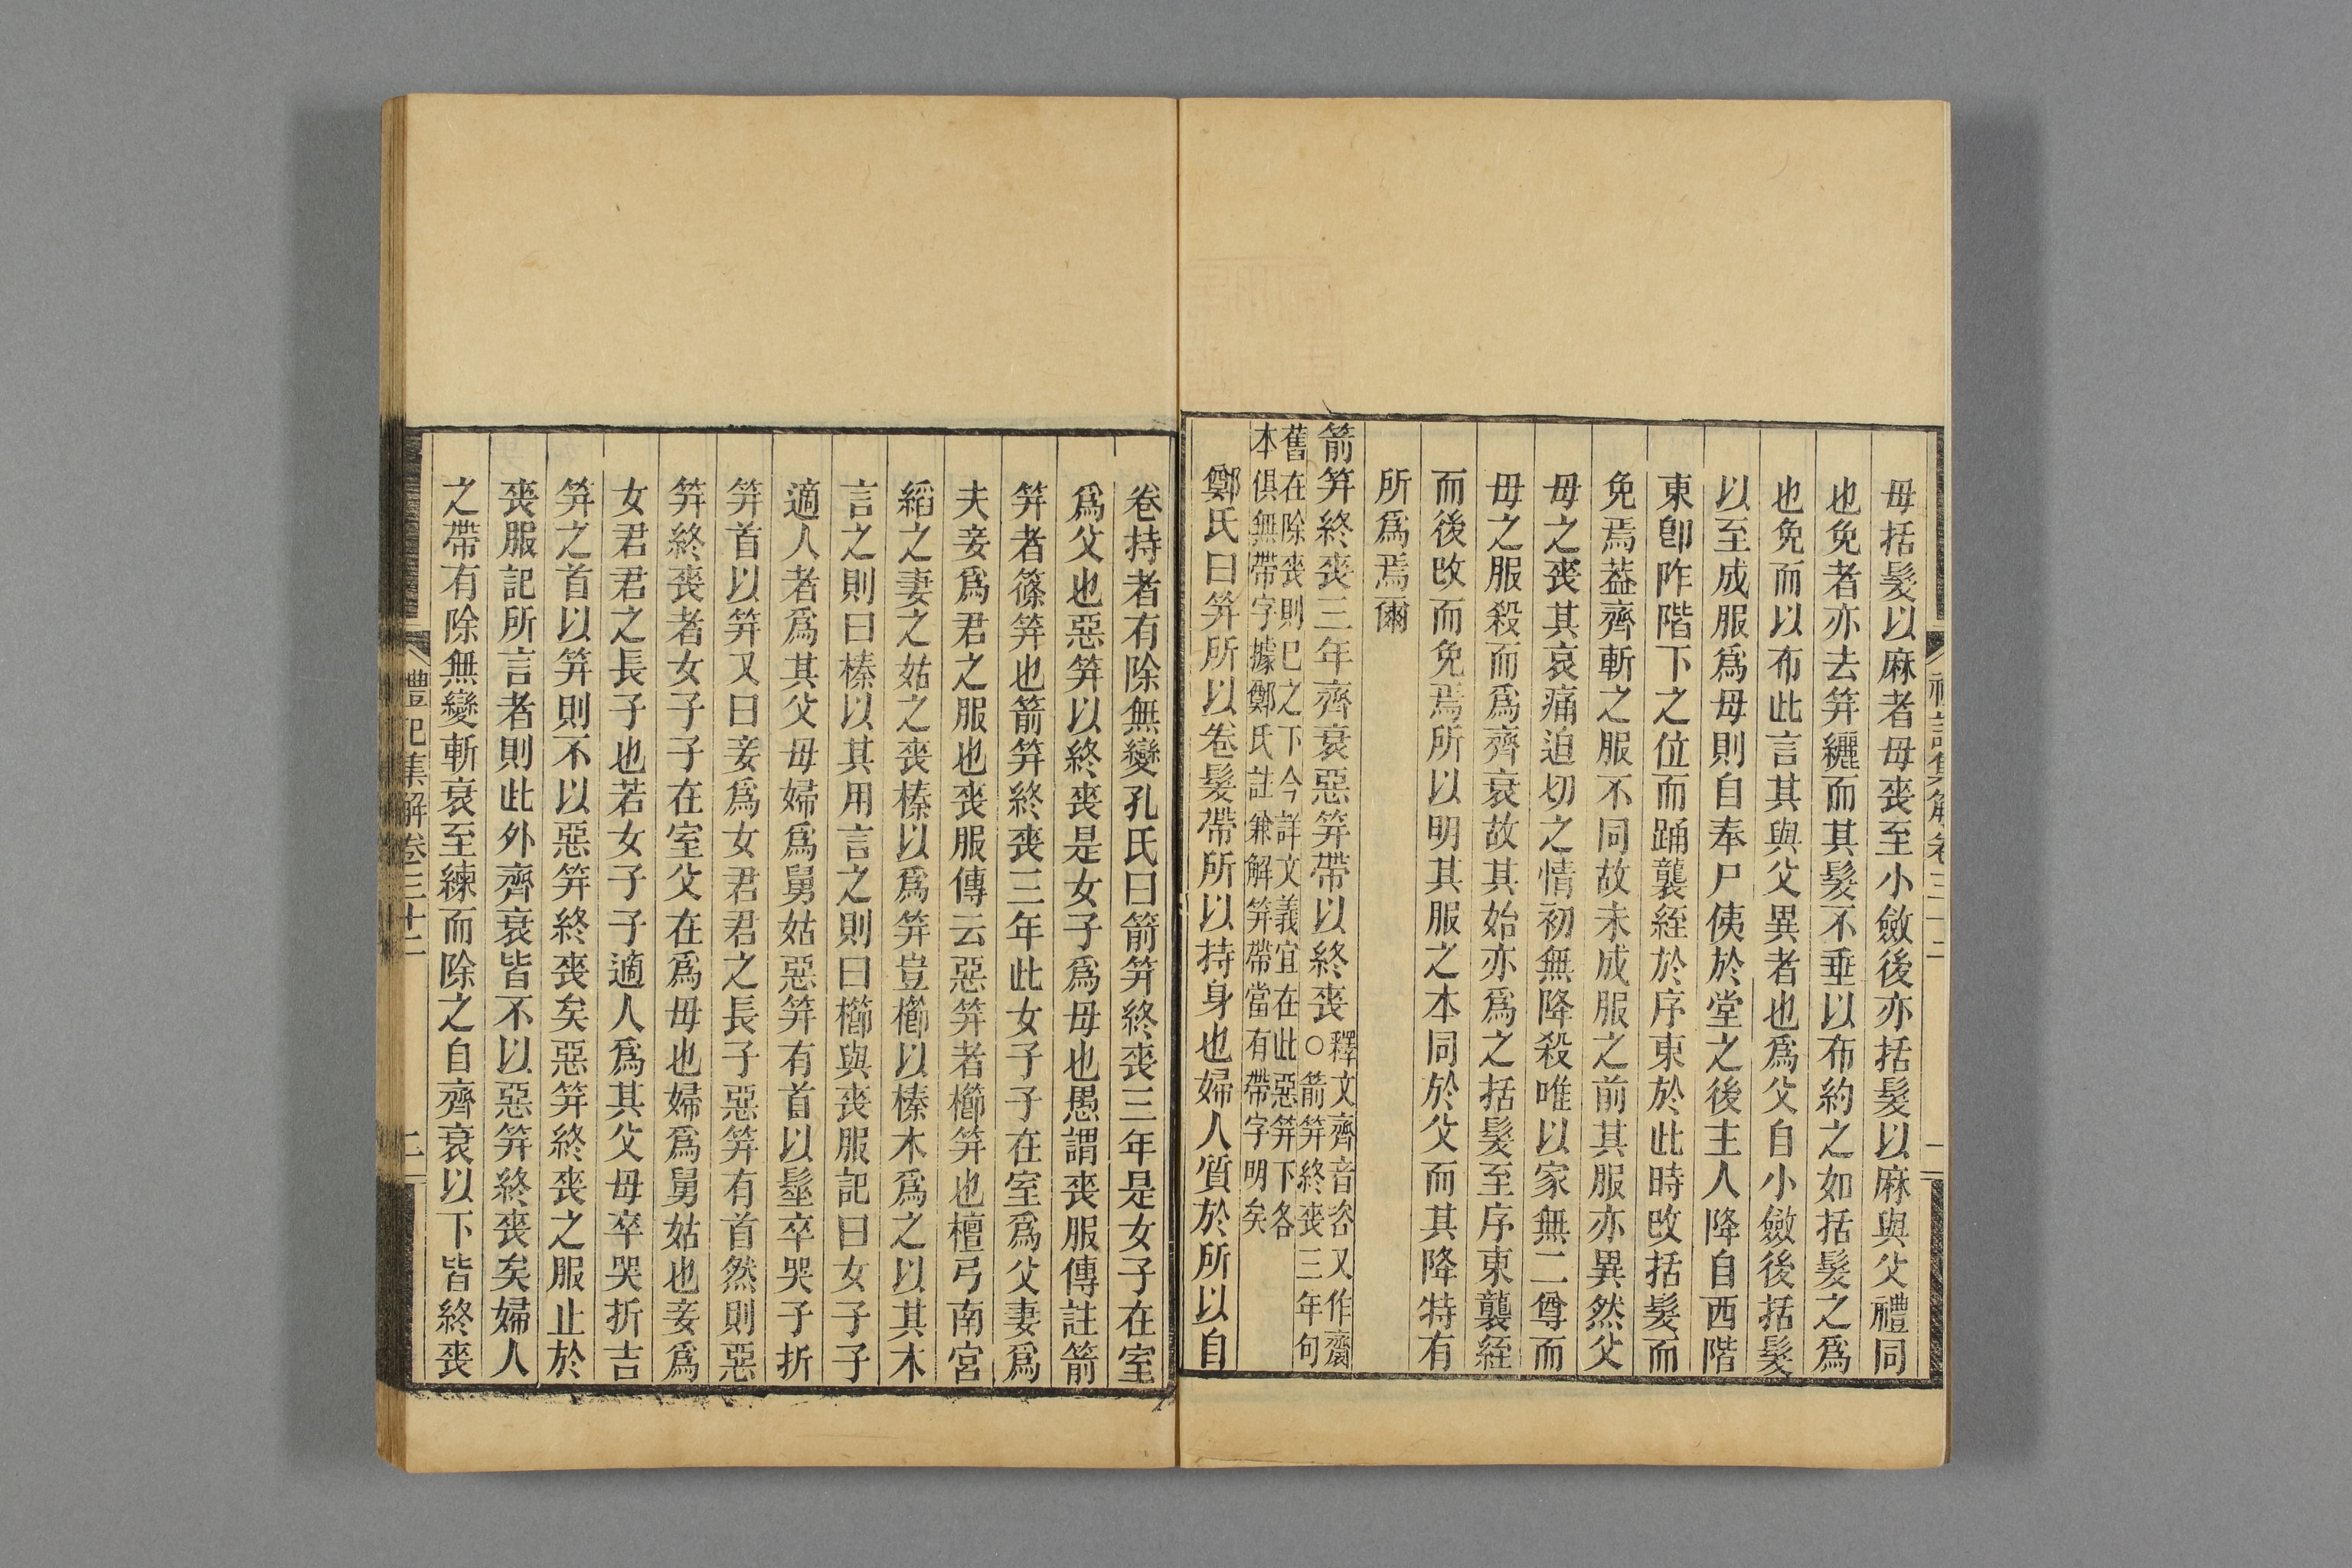 毋括髮以麻者毋喪至小斂後亦括髮以麻與父禮同
也免者亦去筓纚而其髮不垂以布約之如括髮之爲
也免而以布此言其與父異者也爲父自小斂後括髮
以至成服爲毋則自奉尸侇於堂之後主人降自西階
東卽阼階下之位而踊襲絰於序東於此時改括髮而
免焉葢齊斬之服不同故未成服之前其服亦異然父
毋之喪其哀痛迫切之情初無降殺唯以家無二尊而
毋之服殺而爲齊衰故其始亦爲之括髮至序東襲絰
而後改而免焉所以明其服之本同於父而其降特有
所爲焉爾
箭筓終喪三年齊衰惡筓帶以終喪
釋文齊音咨又作齋
○箭筓終喪三年句
舊在除喪則已之下今詳文義宜在此惡筓下各
本俱無帶字據鄭氏註兼解筓帶當有帶字明矣
鄭氏曰筓所以卷髮帶所以持身也婦人質於所以自
卷持者有除無變孔氏曰箭筓終喪三年是女子在室
爲父也惡筓以終喪是女子爲毋也愚謂喪服傳註箭
筓者篠筓也箭筓終喪三年此女子子在室爲父妻爲
夫妾爲君之服也喪服傳云惡筓者櫛筓也檀弓南宮
縚之妻之姑之喪榛以爲筓豈櫛以榛木爲之以其木
言之則曰榛以其用言之則曰櫛與喪服記曰女子子
適人者爲其父毋婦爲舅姑惡筓有首以髽卒哭子折
筓首以筓又曰妾爲女君君之長子惡筓有首然則惡
筓終喪者女子子在室父在爲毋也婦爲舅姑也妾爲
女君君之長子也若女子子適人爲其父毋卒哭折吉
筓之首以筓則不以惡筓終喪矣惡筓終喪之服止於
喪服記所言者則此外齊衰皆不以惡筓終喪矣婦人
之帶有除無變斬衰至練而除之自齊衰以下皆終喪
禮記集解卷三十二
二